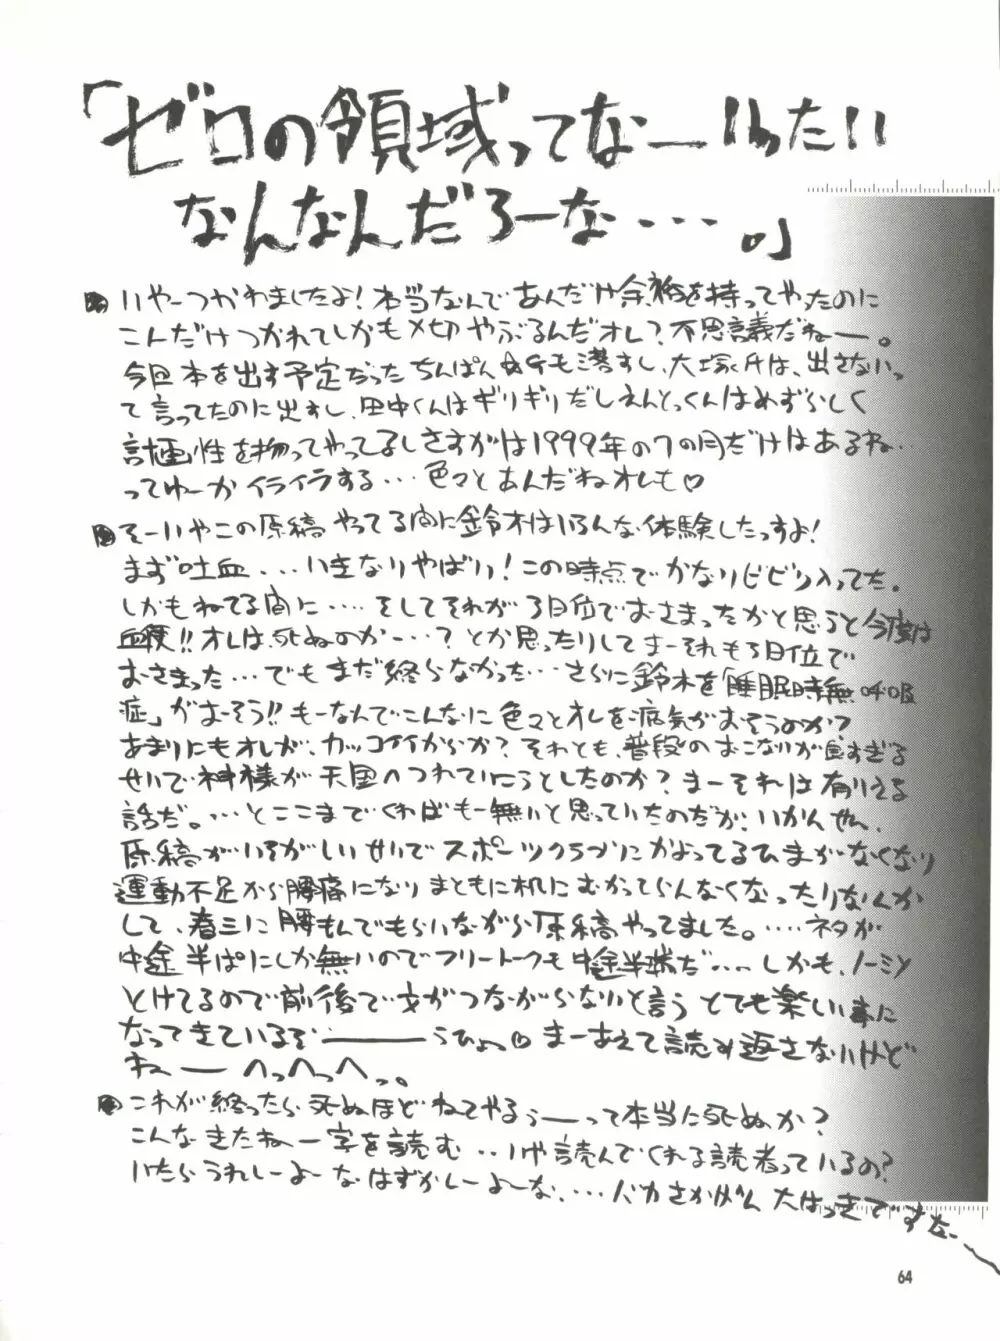 「ゼロの領域ってなーいったい
なんなんだろーな・・・。」
いやーつかわましたよ!本当なんであんだけ余裕を持ってやったのに
こんだけつかれてしかも〆切やぶるんだオレ?不思議だねー。
今回本を出す予定だったちんぱんも落すし、大塚氏は、出さないっ
て言ってたのに出すし、田中くんはギリギリだしえんどっくんはめずらしく
計画性を持ってやってるしさすがは1999年の7の月だけはあるね…
ってゆーかイライラする…色々とあんだねオレも♡
そーいやこの原稿やってる間に鈴木はいろんな体験したっすよ!
まず吐血...いきなりやばい!この時点でかなりビビり入ってた。
しかもねてる間に....そしてそれが3日位でおさまったかと思うと今度は
血便!!オレは死ぬのかー…?とか思ったりしてまーそれも3日位で
おさまった…でもまだ終らなかった…さらに鈴木を「睡眠時無呼吸
症」がおそう!!もーなんでこんなに色々とオレを病気がおそうのか?
あまりにもオレが、カッコイイからか?それとも、普段のおこないが良すぎる
せいで神様が天国へつれていこうとしたのか?まーそれは有りえる
話だ。…とここまでくればもー無いと思っていたのだが、いかんせん、
原稿がいそがしいせいでスポーツクラブにかよってるひまがなくなり
運動不足から腰痛になりまともに机にむかってらんなくなったりなんか
して、春三に腰もんでもらいながら原稿やってました。....ネタが
中途半ぱにしか無いのでフリートークも中途半端だ...しかも、ノーミソ
とけてるので前後で文がつながらないと言うとても楽しい事に
なってきているぞーーうひょっ♡まーあえて読み返さないけど
ねーーへっへっへっ。
これが終ったら死ぬほどねてやるぅーって本当に死ぬか?
こんなきたねー字を読む..いや読んでくれる読者っているの?
いたらうれしーよーなはずかしーよーな、...バカさかげん大はっきですなー
64